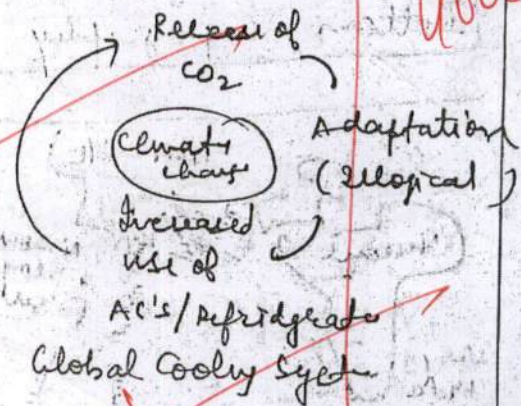 Release of
CO2
Climate
change
Adaptation
(illogical)
Increased
use of
AC's/Refridgerator
Global Cooling System